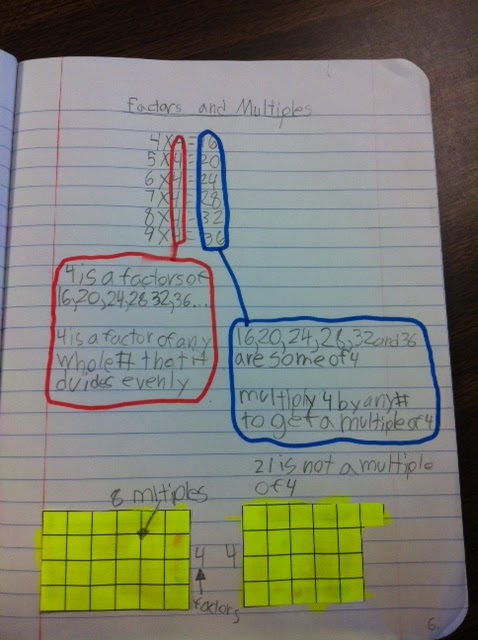 Factors and Multiples
4x4=16
5x4=20
6x4=24
7x4=28
8x4=32
9x4=36
4 is a factors of
16,20,24,28 32,36...
4 is a factor of any
whole # that it
divides evenly
16,20,24,28,32 and 36
are some of 4
multiply 4 by any #
to get a multiple of 4
21 is not a multiple
of 4
8 mltiples
4 4
factors
6